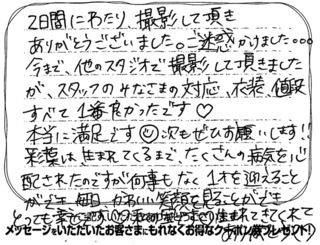 2日間にわたり、撮影して頂き
ありがとうございました。ご迷惑かけました...
今まで、他のスタジオで撮影して頂きました
が、スタッフのみなさまの対応、衣装、値段
すべて1番良かったです♡
本当に満足です 次もぜひお願いします!!
彩葉は生まれてくるまで、たくさんの病気を心
配されたのですが何事もなく1才を迎えること
ができ 毎日 かわいい笑顔を見ることができ
とっても幸せです 生まれてきてくれて
メッセージをいただいたお客さまにもれなくお得なクーポン券プレゼント!
ありがとう